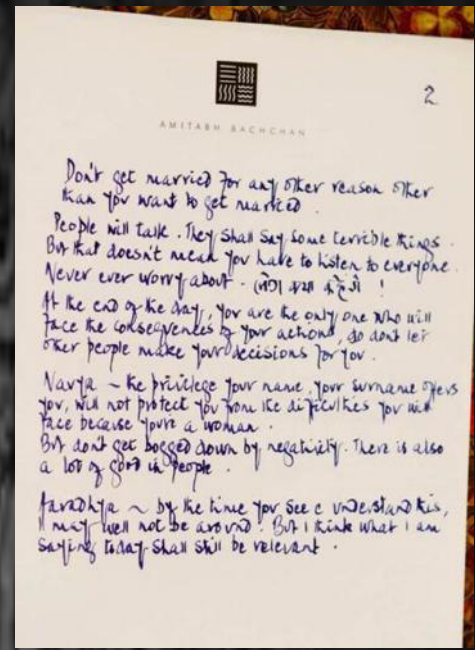 2
AMITABH BACHCHAN
Don't get married for any other reason other
than you want to get married.
People will talk. They shall say some terrible things.
But that doesn't mean you have to listen to everyone.
Never ever worry about - लोग क्या कहेंगे !
At the end of the day, you are the only one who will
face the consequences of your actions, so dont let
other people make your decisions for you.
Navya ~ the privilege your name, your surname offers
you, will not protect you from the difficulties you will
face because you're a woman.
But don't get bogged down by negativity. There is also
a lot of good in people.
Aaradhya ~ by the time you see c understand this,
I may well not be around. But I think what I am
saying today shall still be relevant.